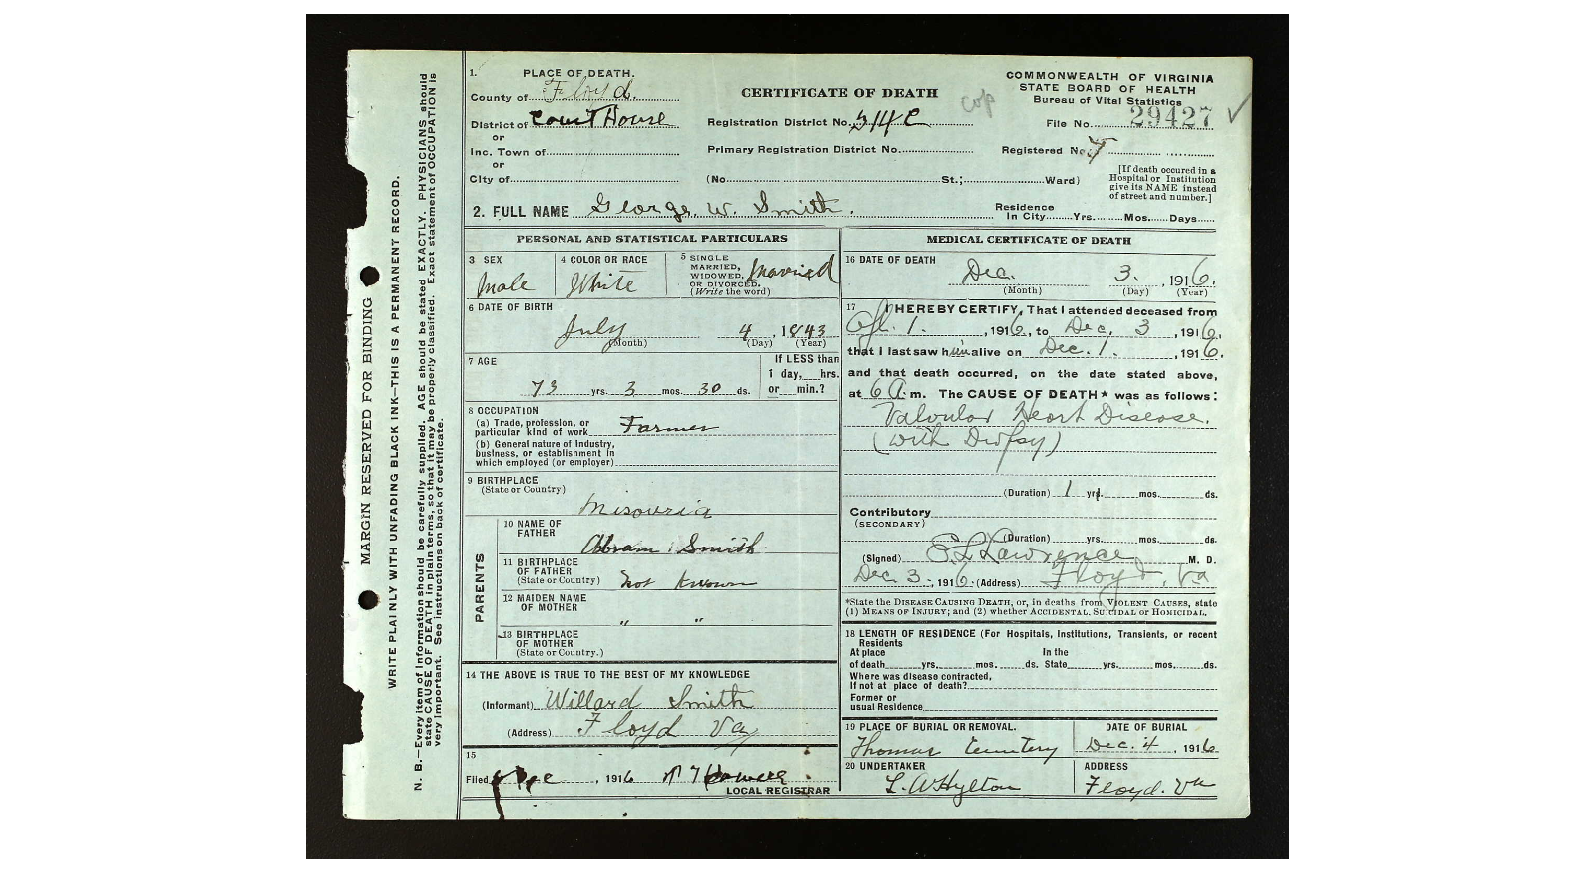 MARGIN RESERVED FOR BINDING
WRITE PLAINLY WITH UNFADING BLACK INK—THIS IS A PERMANENT RECORD.
N. B.—Every item of information should be carefully supplied. AGE should be stated EXACTLY. PHYSICIANS should
state CAUSE OF DEATH in plain terms, so that it may be properly classified. Exact statement of OCCUPATION is
very important. See instructions on back of certificate.
1. PLACE OF DEATH.
County of Floyd
District of Court House
or
Inc. Town of
or
City of
CERTIFICATE OF DEATH
cop
Registration District No. 314C
Primary Registration District No.
(No. St.; Ward)
COMMONWEALTH OF VIRGINIA
STATE BOARD OF HEALTH
Bureau of Vital Statistics
File No. 29427 ✓
Registered No.
[If death occured in a
Hospital or Institution
give its NAME instead
of street and number.]
2. FULL NAME George. W. Smith.
Residence
In City Yrs. Mos. Days
PERSONAL AND STATISTICAL PARTICULARS
3 SEX
Male
4 COLOR OR RACE
White
5 SINGLE
MARRIED,
WIDOWED,
OR DIVORCED,
(Write the word)
Married
6 DATE OF BIRTH
July 4, 1843
(Month) (Day) (Year)
7 AGE
73 yrs. 3 mos. 30 ds.
If LESS than
1 day, hrs.
or min.?
8 OCCUPATION
(a) Trade, profession, or
particular kind of work Farmer
(b) General nature of Industry,
business, or establishment in
which employed (or employer)
9 BIRTHPLACE
(State or Country)
Misouria
PARENTS
10 NAME OF
FATHER
Abram Smith
11 BIRTHPLACE
OF FATHER
(State or Country) Not known
12 MAIDEN NAME
OF MOTHER
" "
13 BIRTHPLACE
OF MOTHER
(State or Country.)
14 THE ABOVE IS TRUE TO THE BEST OF MY KNOWLEDGE
(Informant) Willard Smith
(Address) Floyd Va
15
Filed Dec, 1916
LOCAL REGISTRAR
MEDICAL CERTIFICATE OF DEATH
16 DATE OF DEATH
Dec. 3., 1916.
(Month) (Day) (Year)
17 I HEREBY CERTIFY, That I attended deceased from
1., 1916, to Dec. 3, 1916,
that I last saw him alive on Dec. 1., 1916.
and that death occurred, on the date stated above,
at 6 A. m. The CAUSE OF DEATH* was as follows:
Valvular Heart Disease.
(with Dropsy)
(Duration) 1 yrs. mos. ds.
Contributory
(SECONDARY)
(Duration) yrs. mos. ds.
(Signed) Lawrence M. D.
Dec. 3-, 1916. (Address) Floyd, Va
*State the DISEASE CAUSING DEATH, or, in deaths from VIOLENT CAUSES, state
(1) MEANS OF INJURY; and (2) whether ACCIDENTAL, SUICIDAL or HOMICIDAL.
18 LENGTH OF RESIDENCE (For Hospitals, Institutions, Transients, or recent
Residents
At place In the
of death yrs. mos. ds. State yrs. mos. ds.
Where was disease contracted,
If not at place of death?
Former or
usual Residence
19 PLACE OF BURIAL OR REMOVAL. DATE OF BURIAL
Thomas Cemetery Dec. 4, 1916
20 UNDERTAKER ADDRESS
L. A. Hylton Floyd. Va